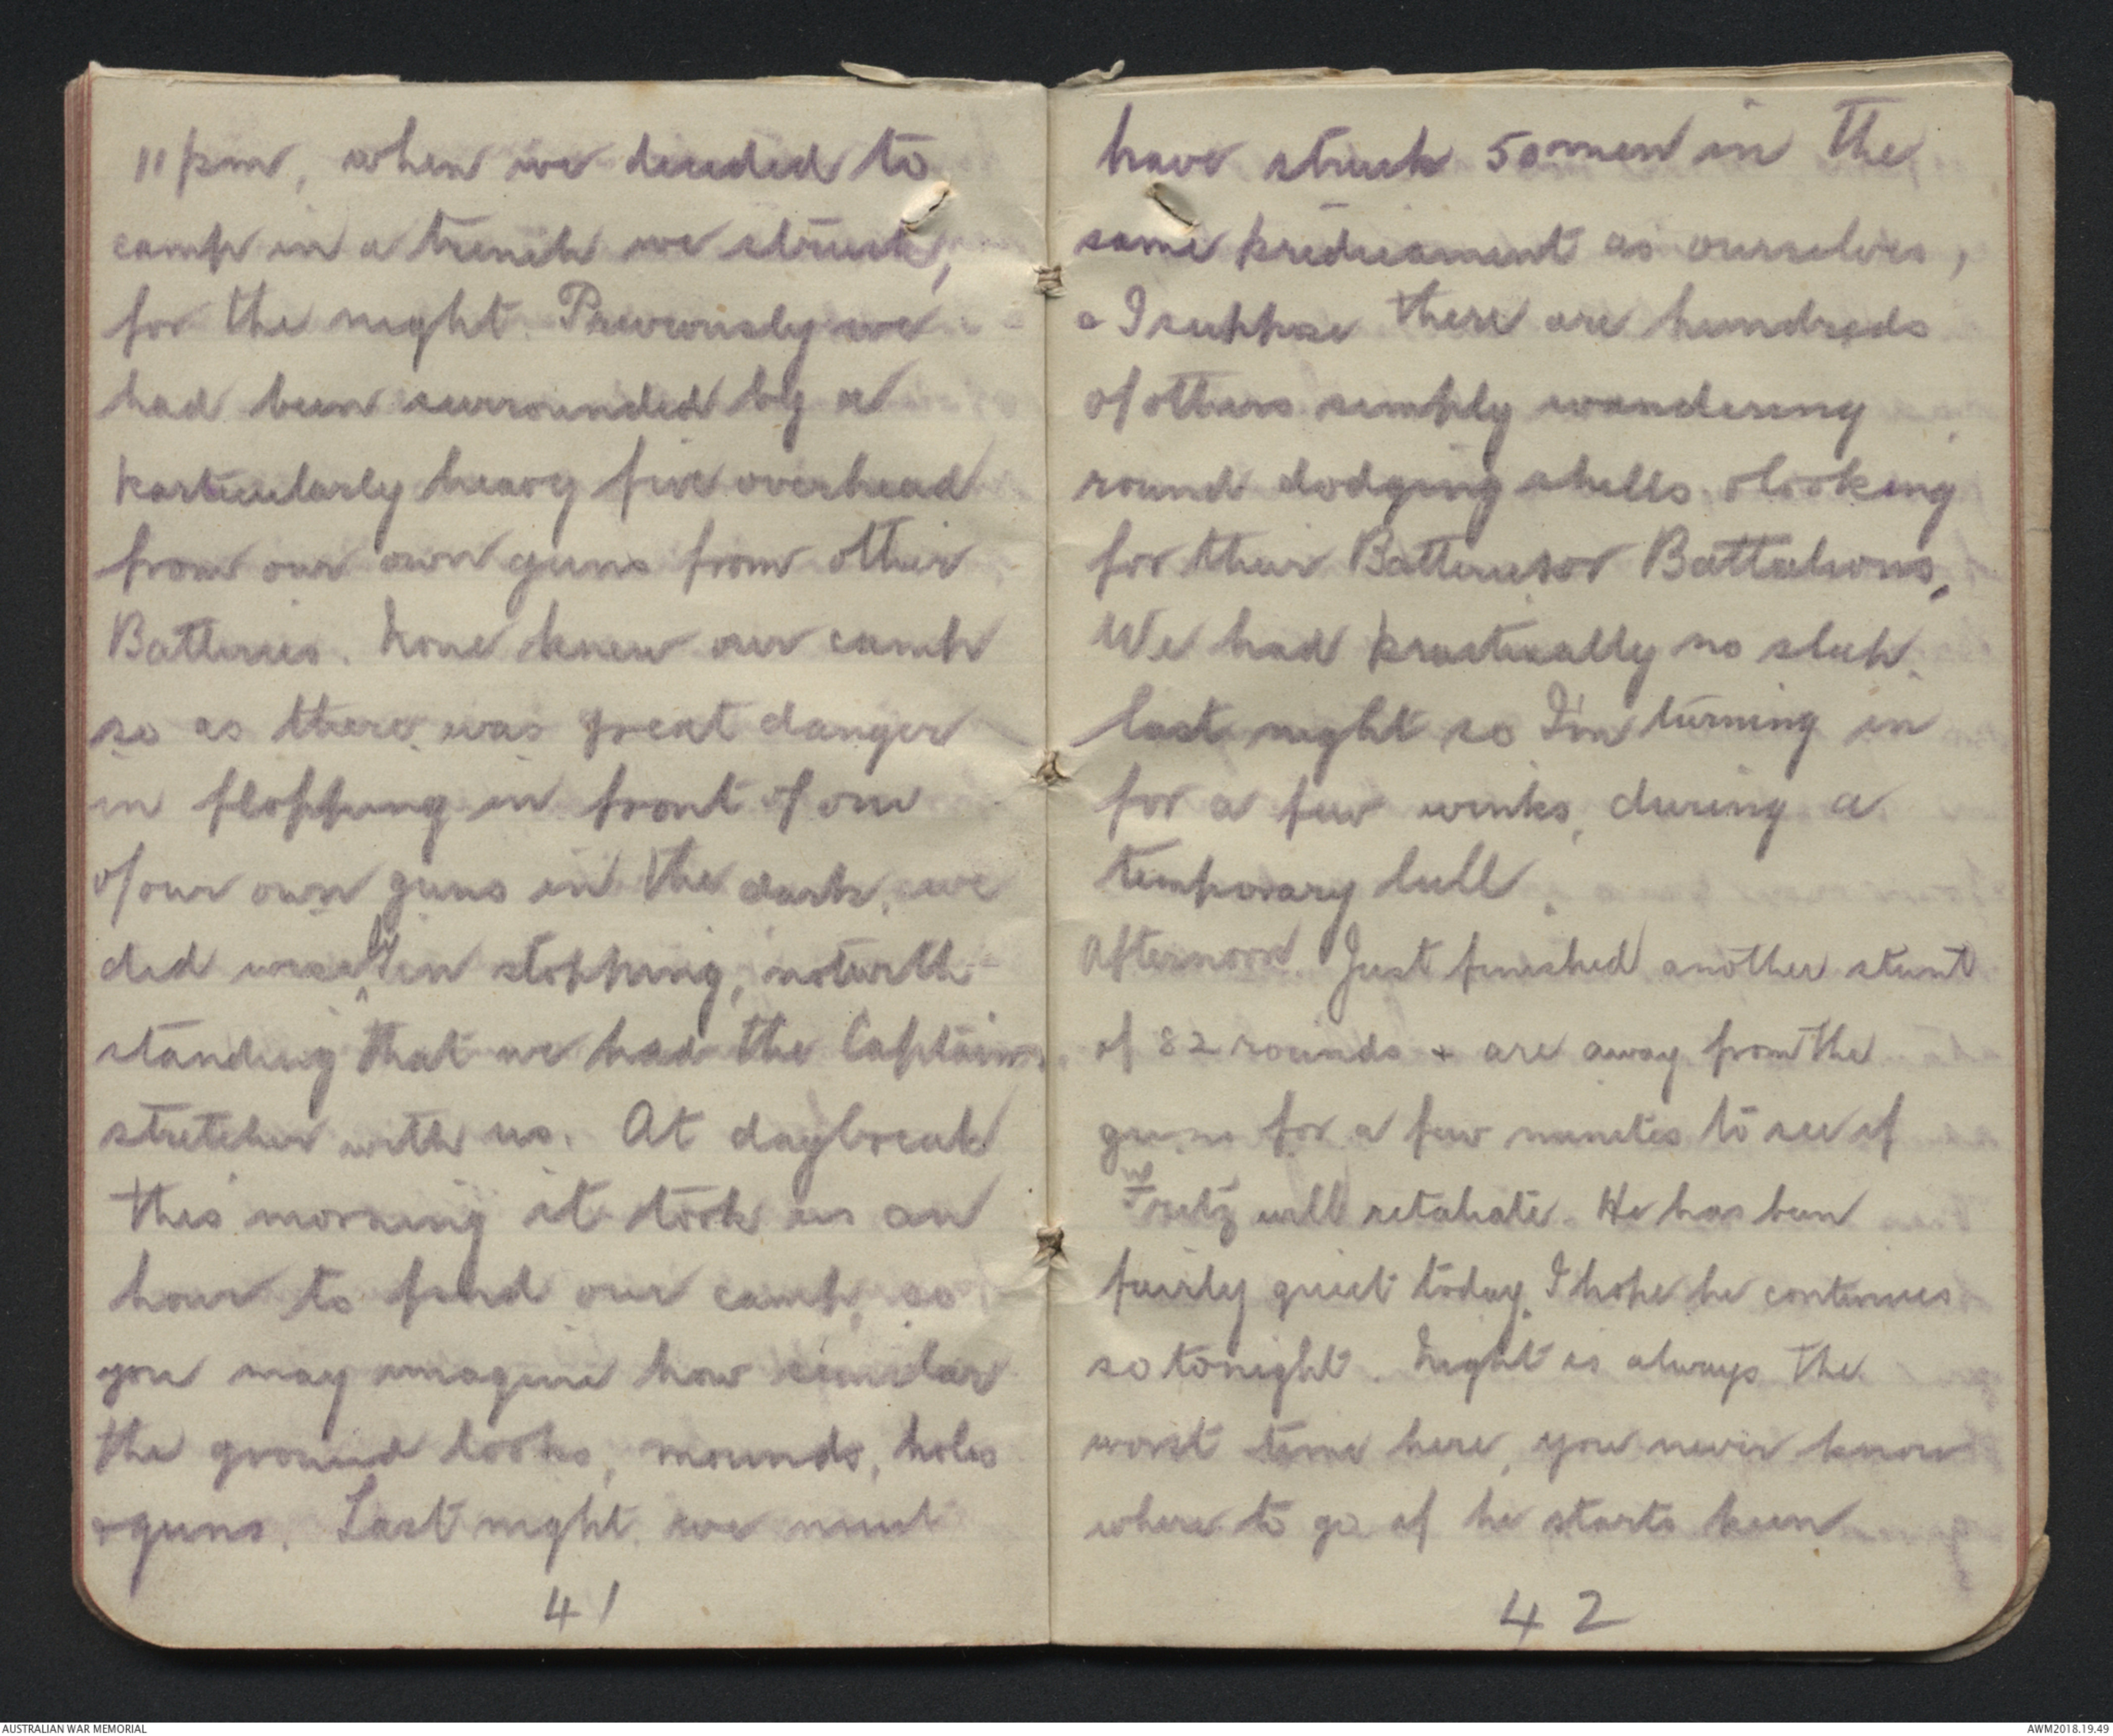 11 pm, when we decided to
camp in a trench we struck,
for the night. Previously we
had been surrounded by a
particularly heavy fire overhead
from our own guns from other
Batteries. None knew our camp
so as there was great danger
in flopping in front of one
of our own guns in the dark, we
did wisely in stopping, notwith-
standing that we had the Captains
stretcher with us. At daybreak
this morning it took us an
hour to find our camp, so
you may imagine how similar
the ground looks, mounds, holes
& guns. Last night we must
41
have struck 50 men in the
same predicament as ourselves,
& I suppose there are hundreds
of others simply wandering
round dodging shells & looking
for their Batteries or Battalions.
We had practically no sleep
last night so I'm turning in
for a few winks, during a
temporary lull.
Afternoon. Just finished another stunt
of 82 rounds & are away from the
guns for a few minutes to see if
Fritz will retaliate. He has been
fairly quiet today. I hope he continues
so tonight. Night is always the
worst time here, you never know
where to go if he starts keen
42
AUSTRALIAN WAR MEMORIAL
AWM2018.19.49